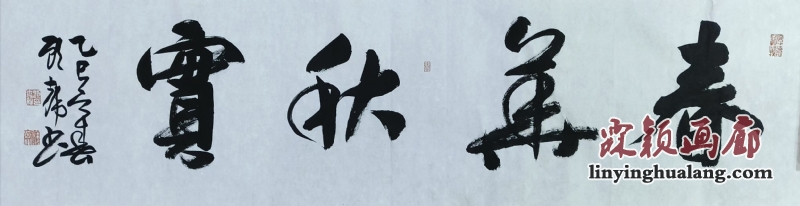 春華秋實
乙巳年春
書
霖颖画廊
linyinghualang.com